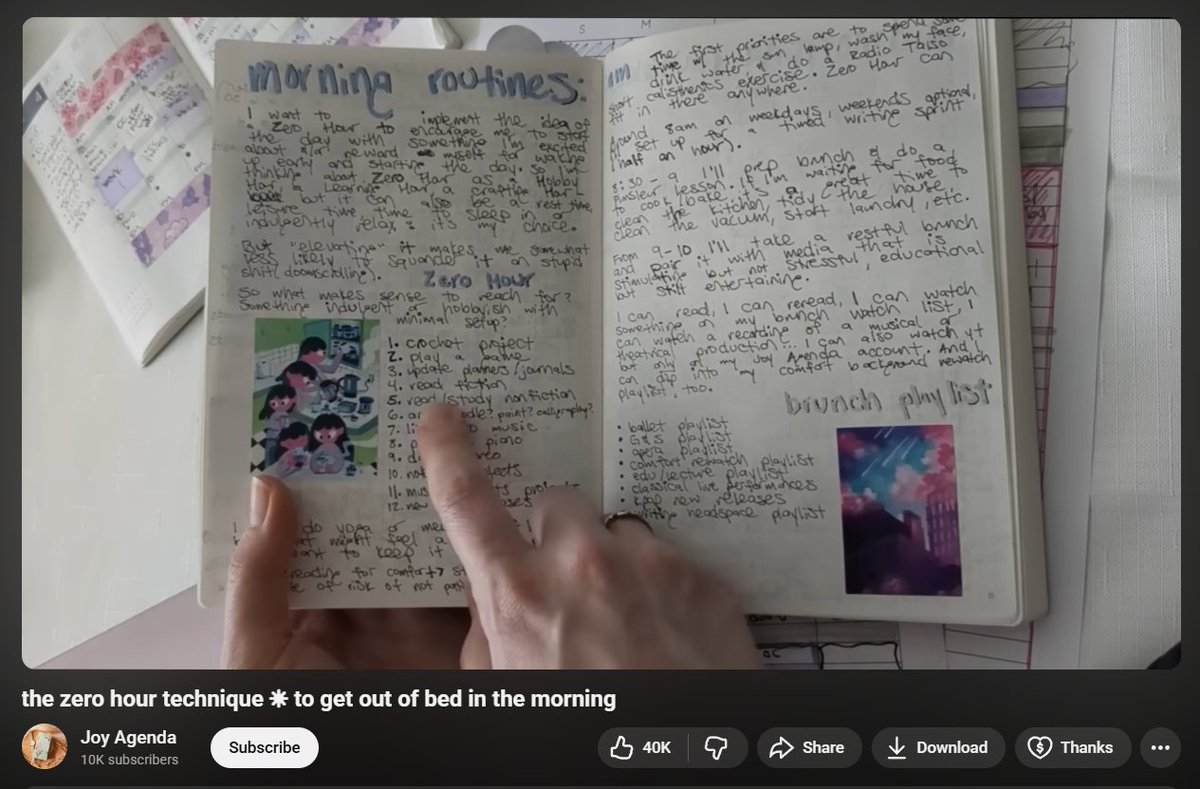 morning routines:
I want to implement the idea of
a Zero Hour to encourage me to start
the day with something I'm excited
about and reward myself for waking
up early and starting the day. So I'm
thinking about Zero Hour as a Hobby
Hour, a Learning Hour, a Crafting Hour -
but it can also be a rest time,
leisure time, time to sleep in or
indulgently relax - it's my choice.
But "elevating" it makes me somewhat
less likely to squander it on stupid
shit (doomscrolling).
Zero Hour
So what makes sense to reach for?
Something indulgent or hobbyish with
minimal setup?
1. crochet project
2. play a game
3. update planners/journals
4. read fiction
5. read/study nonfiction
6. paint? calligraphy?
7. music
8. piano
9.
10.
11. projects
12. new
do yoga or
might feel a
want to keep it
reading for comfort →
risk of not
The first priorities are to spend some
time w/ the sun lamp, wash my face,
drink water & do a Radio Taiso
short calisthenics exercise. Zero Hour can
fit in there anywhere.
Around 8am on weekdays, weekends optional,
set up for a timed writing sprint
(half an hour).
8:30 - 9 I'll prep brunch & do a
Pimsleur lesson. If I'm waiting for food
to cook/bake, it's a great time to
clean the kitchen, tidy the house,
clean the vacuum, start laundry, etc.
From 9-10 I'll take a restful brunch
and pair it with media that is
stimulating but not stressful, educational
but still entertaining.
I can read, I can reread, I can watch
something on my brunch watch list, I
can watch a recording of a musical or
theatrical production... I can also watch yt
but only on my Joy Agenda account. And I
can dip into my comfort background rewatch
playlist, too.
brunch playlist
• ballet playlist
• G&S playlist
• opera playlist
• comfort rewatch playlist
• edu/lecture playlist
• classical live performances
• kpop new releases
• writing headspace playlist
the zero hour technique ✷ to get out of bed in the morning
Joy Agenda
10K subscribers
Subscribe
40K
Share
Download
Thanks